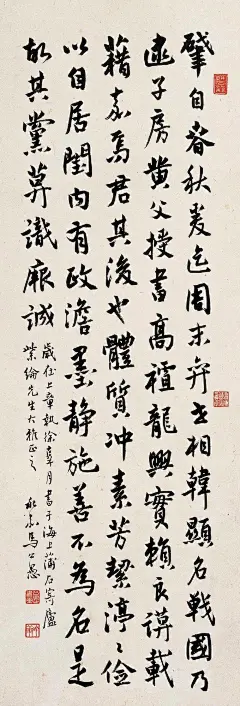 肇自春秋爰迄周末弈世相韓顯名戰國乃
逮子房黃父授書高祖龍興實賴良謨載
藉嘉焉君其後也體質冲素芳絜渟〻儉
以自居閨內有政澹墨靜施善不為名是
故其黨莫識厥誠
歲在上章執徐皋月書于海上蒲石寄廬
紫綸先生大雅正之
永嘉馬公愚